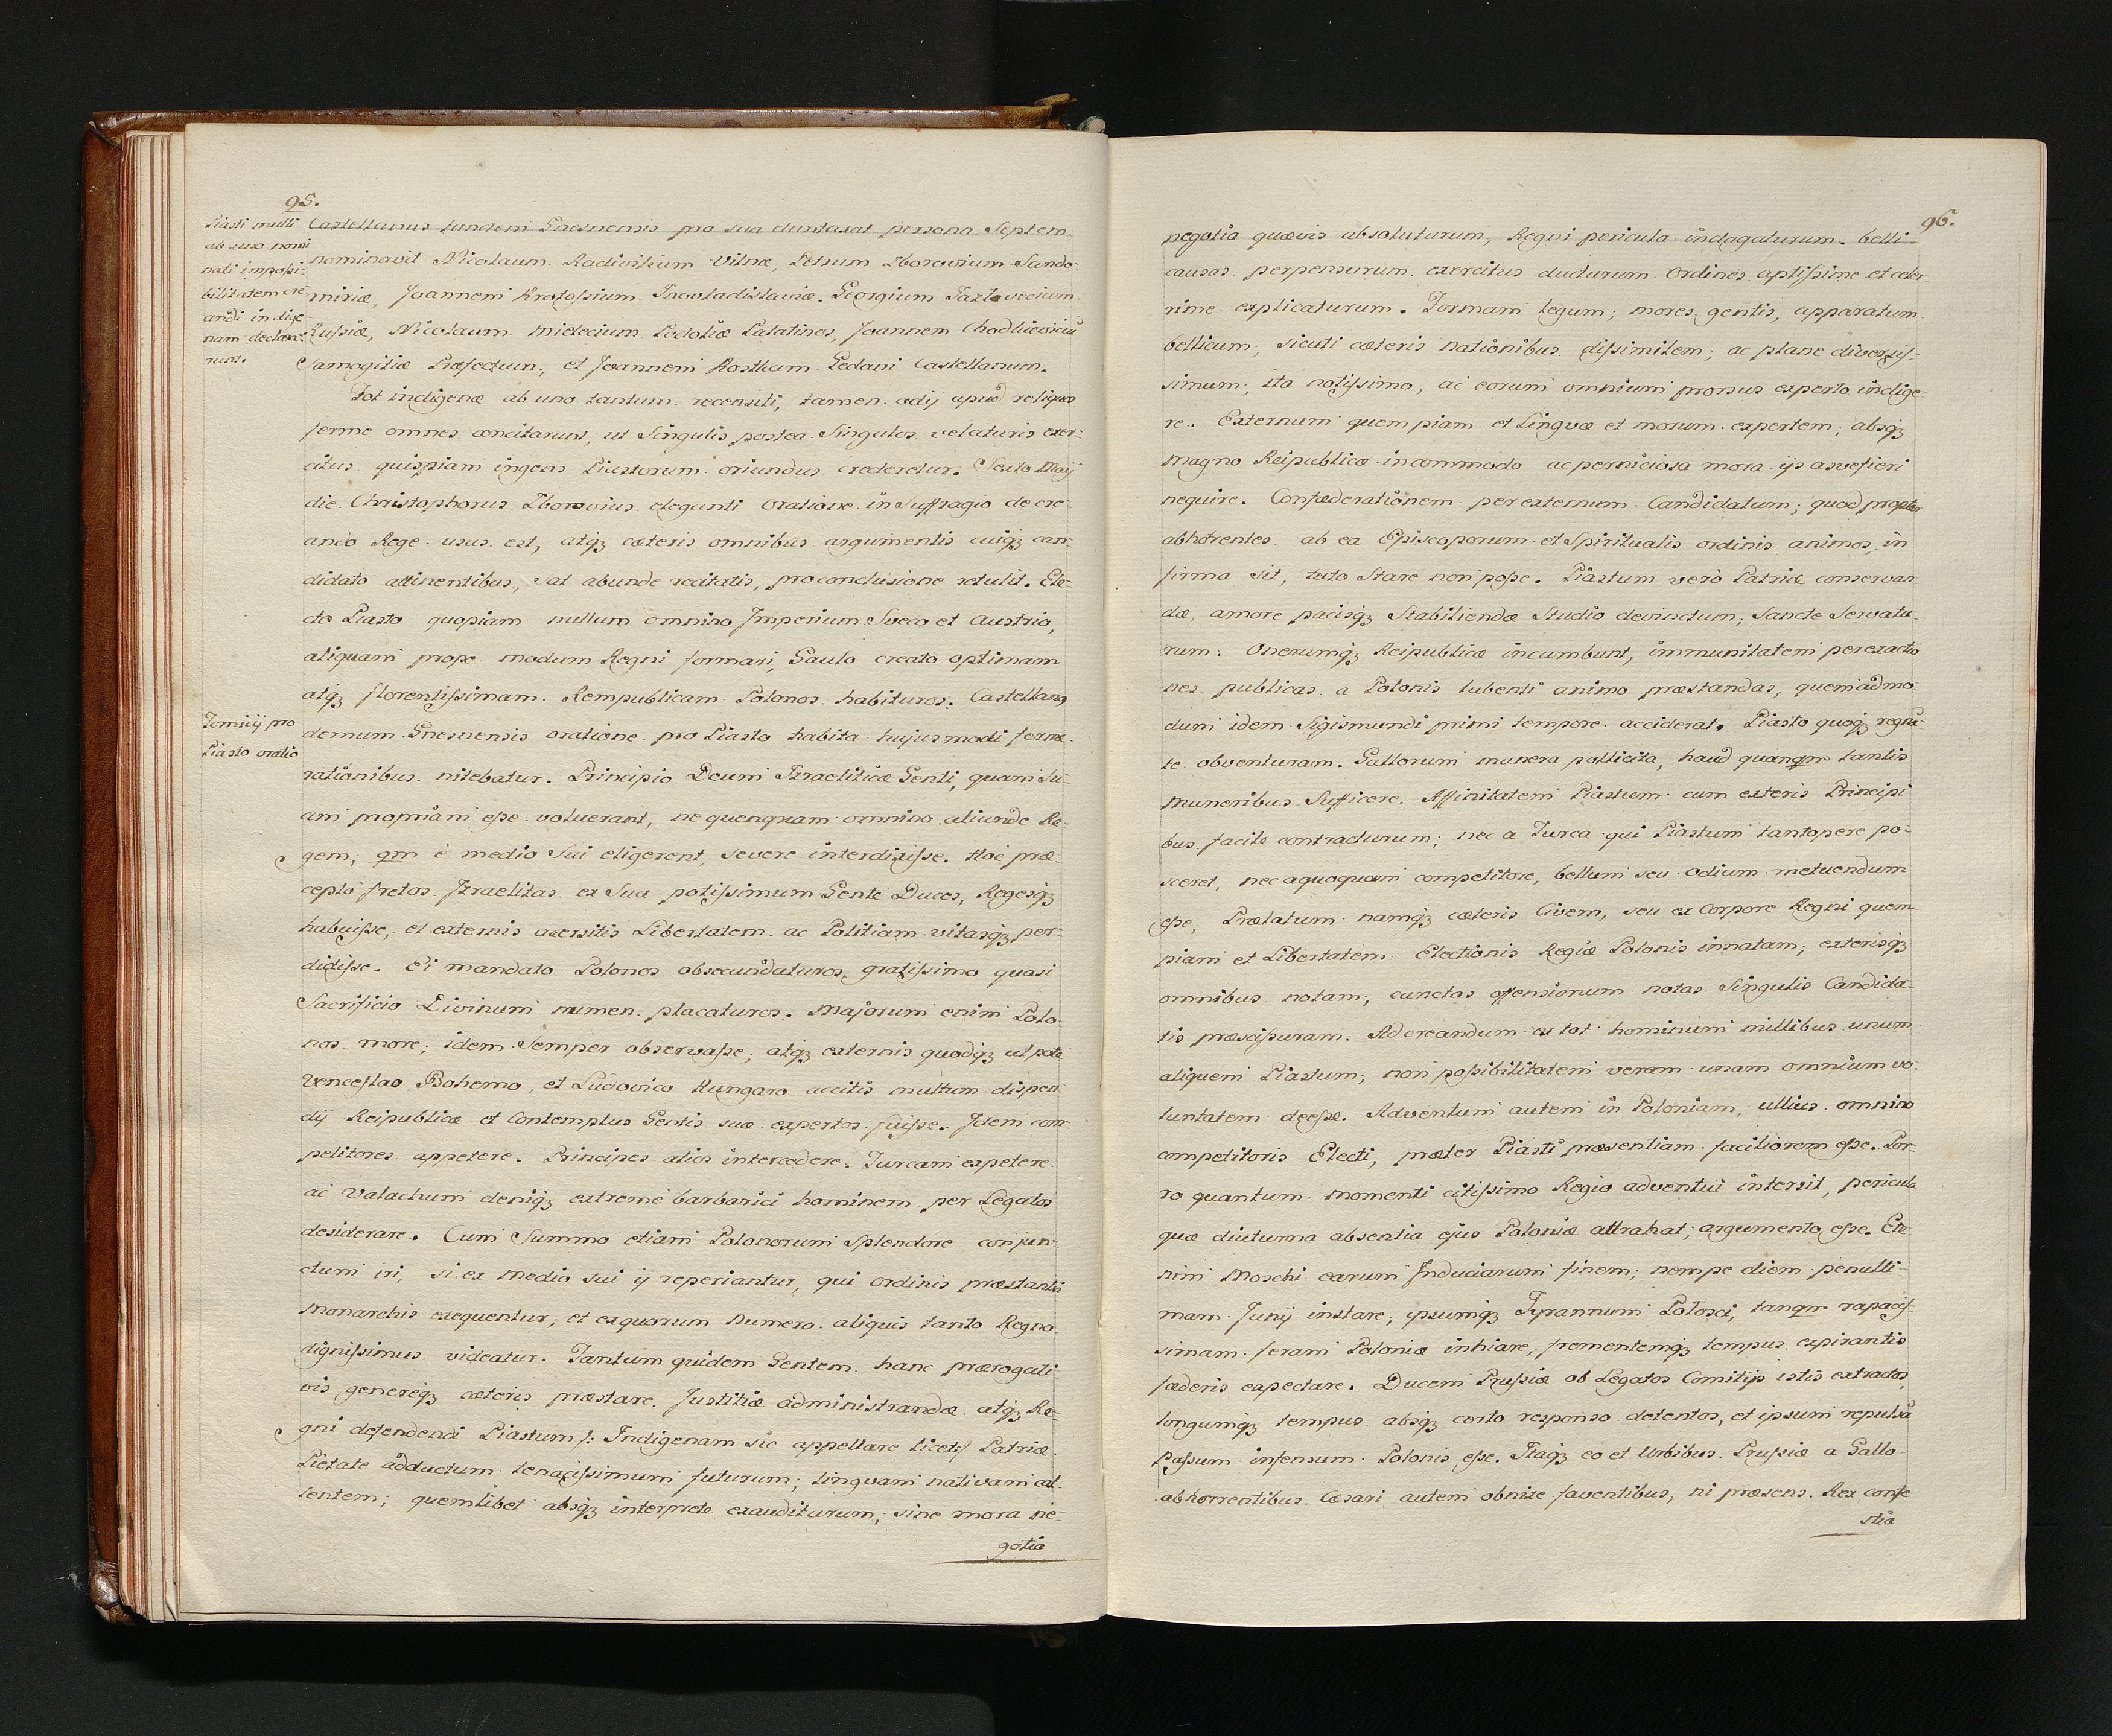 95.
Piasti multi
ab uno nomi
nati impossi-
bilitatem cre-
andi indige-
nam declara-
runt.
Castellanus tandem Gnesnensis pro sua duntaxat persona Septem
nominavit Nicolaum Radivilium Vilnæ, Petrum Zborovium Sando-
miriæ, Joannem Krotossium Inovladislaviæ. Georgium Jazlovecium
Russiæ, Nicolaum Mielecium Podoliæ Palatinos, Joannem Chodkievicium
Samogitiæ Præfectum, et Joannem Kostkam Gedani Castellanum.
Tot indigenæ ab uno tantum recensiti, tamen odij apud reliquos
ferme omnes concitarunt, ut Singulis postea Singulos velaturis exer-
citus quispiam ingens Piastorum oriundus crederetur. Sexto Maij
die Christophorus Zborovius eleganti Oratione in Suffragio de cre-
ando Rege usus est, atqꝫ cæteris omnibus argumentis cuiqꝫ can-
didato attinentibus, sat abunde recitatis, pro conclusione retulit. Ele-
cto Piasto quopiam nullum omnino Imperium Sveco et Austrio,
aliquam prope modum Regni formam, Gaulo creato optimam
atqꝫ florentissimam Rempublicam Polonos habituros. Castellanus
Tomicij pro
Piasto oratio
demum Gnesnensis oratione pro Piasto habita hujusmodi ferme
rationibus nitebatur. Principio Deum Izraeliticæ Genti, quam Su-
am propriam esse voluerant, ne quenquam omnino aliunde Re-
gem, qm è medio Sui eligerent, severe interdixisse. Hoc præ-
cepto fretos Izraelitas ex Sua potissimum Gente Duces, Regesqꝫ
habuisse, et externis accersitis Libertatem ac Politiam vitasqꝫ per-
didisse. Ei mandato Polonos obsecundaturos, gratissimo quasi
Sacrificio Divinum numen placaturos. Majorum enim Polo-
nos more, idem Semper observasse; atqꝫ externis quodqꝫ ut pote
Venceslao Bohemo, et Ludovico Hungaro accitis multum dispen-
dij Reipublicæ et Contemptus Gentis suæ expertos fuisse. Idem com-
petitores appetere. Principes alios intercedere. Turcam expetere
ac Valachum deniqꝫ extremè barbarici hominem per Legatos
desiderare. Cum Summo etiam Polonorum Splendore conjun-
ctum iri, si ex medio sui ij reperiantur, qui ordinis præstantia
Monarchis exequentur, et ex quorum Numero aliquis tanto Regno
dignissimus videatur. Tantum quidem Gentem hanc prærogati
vis, genereqꝫ cæteris præstare. Justitiæ administrandæ atqꝫ Re-
gni defendendi Piastum /: Indigenam sic appellare licet :/ Patriæ
Pietate adductum tenacissimum futurum; linguam nativam cal-
lentem; quemlibet absqꝫ interprete exauditurum, sine mora ne-
gotia
96.
negotia quævis absoluturum, Regni pericula indagaturum. belli
causas perpensurum exercitus ducturum Ordines aptissime et celer-
rime explicaturum. Formam legum; mores gentis, apparatum
bellicum, sicuti cæteris nationibus dissimilem; ac plane diversis-
simum; ita notissimo, ac eorum omnium prorsus experto indige-
re. Externum quempiam et Linguæ et morum expertem; absqꝫ
magno Reipublicæ incommodo ac perniciosa mora ijs asvefieri
nequire. Confæderationem per externum Candidatum; quod propter
abhorrentes ab ea Episcoporum et Spiritualis ordinis animos, in
firma sit, tuto Stare non posse. Piastum verò Patriæ conservan
dæ amore pacisqꝫ Stabiliendæ Studio devinctum, Sancte Servatu-
rum. Onerumqꝫ Reipublicæ incumbunt, immunitatem per exactio
nes publicas a Polonis lubenti animo præstandas, quemadmo
dum idem Sigismundi primi tempore acciderat. Piasto quoqꝫ regnan-
te obventuram. Gallorum munera pollicita, haud quanqm tantis
muneribus Sufficere. Affinitatem Piastum cum exteris Principi
bus facile contracturum; nec a Turca qui Piastum tantopere po-
sceret, nec a quoquam competitore, bellum seu odium metuendum
esse, Prælatum namqꝫ cæteris Civem, seu ex Corpore Regni quem-
piam et Libertatem Electionis Regiæ Polonis innatam, exterisqꝫ
omnibus notam; cunctas offensionum notas Singulis Candida-
tis præscissuram: Ad creandum ex tot hominum millibus unum
aliquem Piastum; non possibilitatem veram unam omnium vo-
luntatem deesse. Adventum autem in Poloniam, ullius omnino
competitoris Electi, præter Piasti præsentiam faciliorem esse. Por-
ro quantum momenti citissimo Regio adventui intersit, pericula
quæ diuturna absentia ejus Poloniæ attrahat; argumento esse. Ete-
nim Moschi earum Induciarum finem; nempe diem penulti-
mam Junij instare, ipsumqꝫ Tyrannum Polosci, tanqm rapacis-
simam feram Poloniæ inhiare, frementemqꝫ tempus expirantis
fæderis expectare. Ducem Prussiæ ob Legatos Comitijs istis extractos,
longumqꝫ tempus absqꝫ certo responso detentos, et ipsum repulsam
Passum infensum Polonis esse. Itaqꝫ eo et Urbibus Prussiæ a Gallo
abhorrentibus. Cæsari autem obnixe faventibus, ni præsens Rex confe
stim